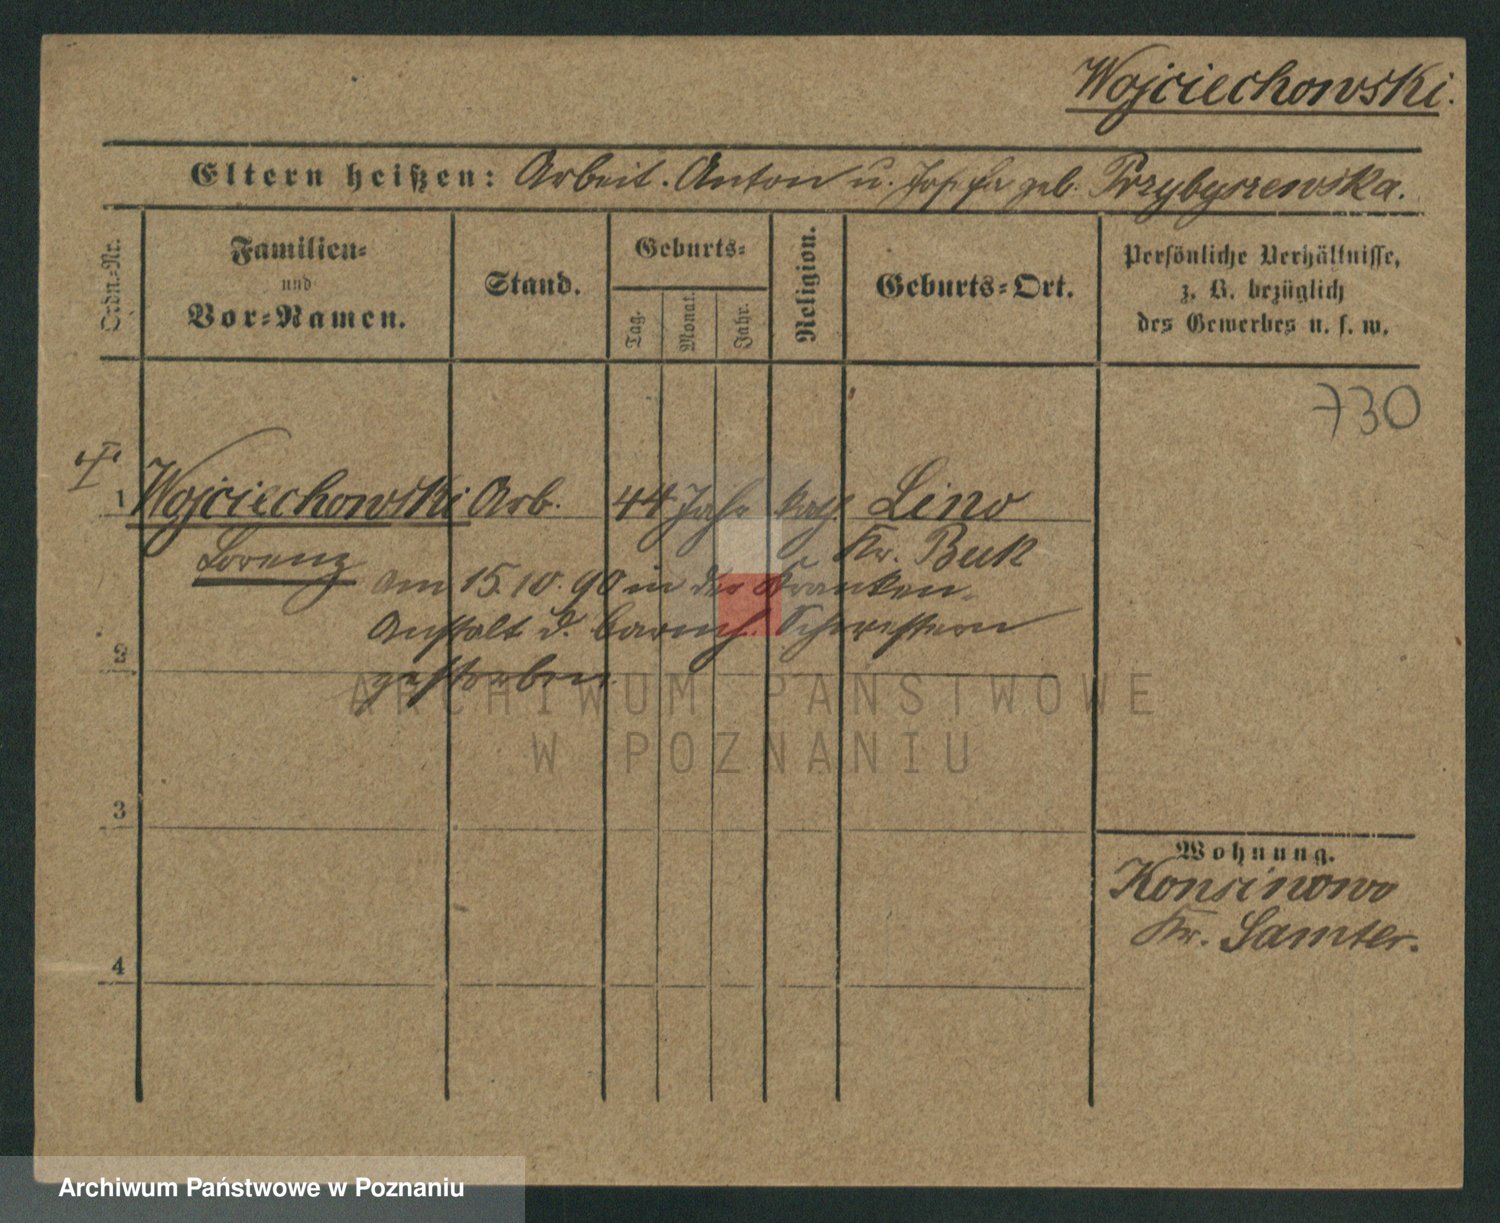 Wojciechowski.
Eltern heißen: Arbeit. Anton u. Josefa geb. Przybyszewska.
Ordn.-Nr.
Familien-
und
Vor-Namen.
Stand.
Geburts-
Tag.
Monat.
Jahr.
Religion.
Geburts-Ort.
Persönliche Verhältnisse,
z. B. bezüglich
des Gewerbes u. s. w.
730
1 Wojciechowski Arb. 44 Jahr kath. Lino
Lorenz Kr. Buk
am 15.10.90 in der Kranken-
Anstalt d. barmh. Schwestern
2
gestorben.
ARCHIWUM PAŃSTWOWE
W POZNANIU
3
Wohnung.
Konsinowo
Kr. Samter.
4
Archiwum Państwowe w Poznaniu